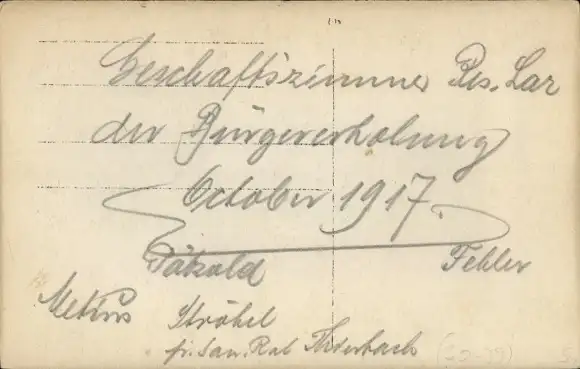 Geschäftszimmer Res. Laz
der Bürgererholung
October 1917.
Pätzold Fehler
Metius Ströhel
fr. San. Rat